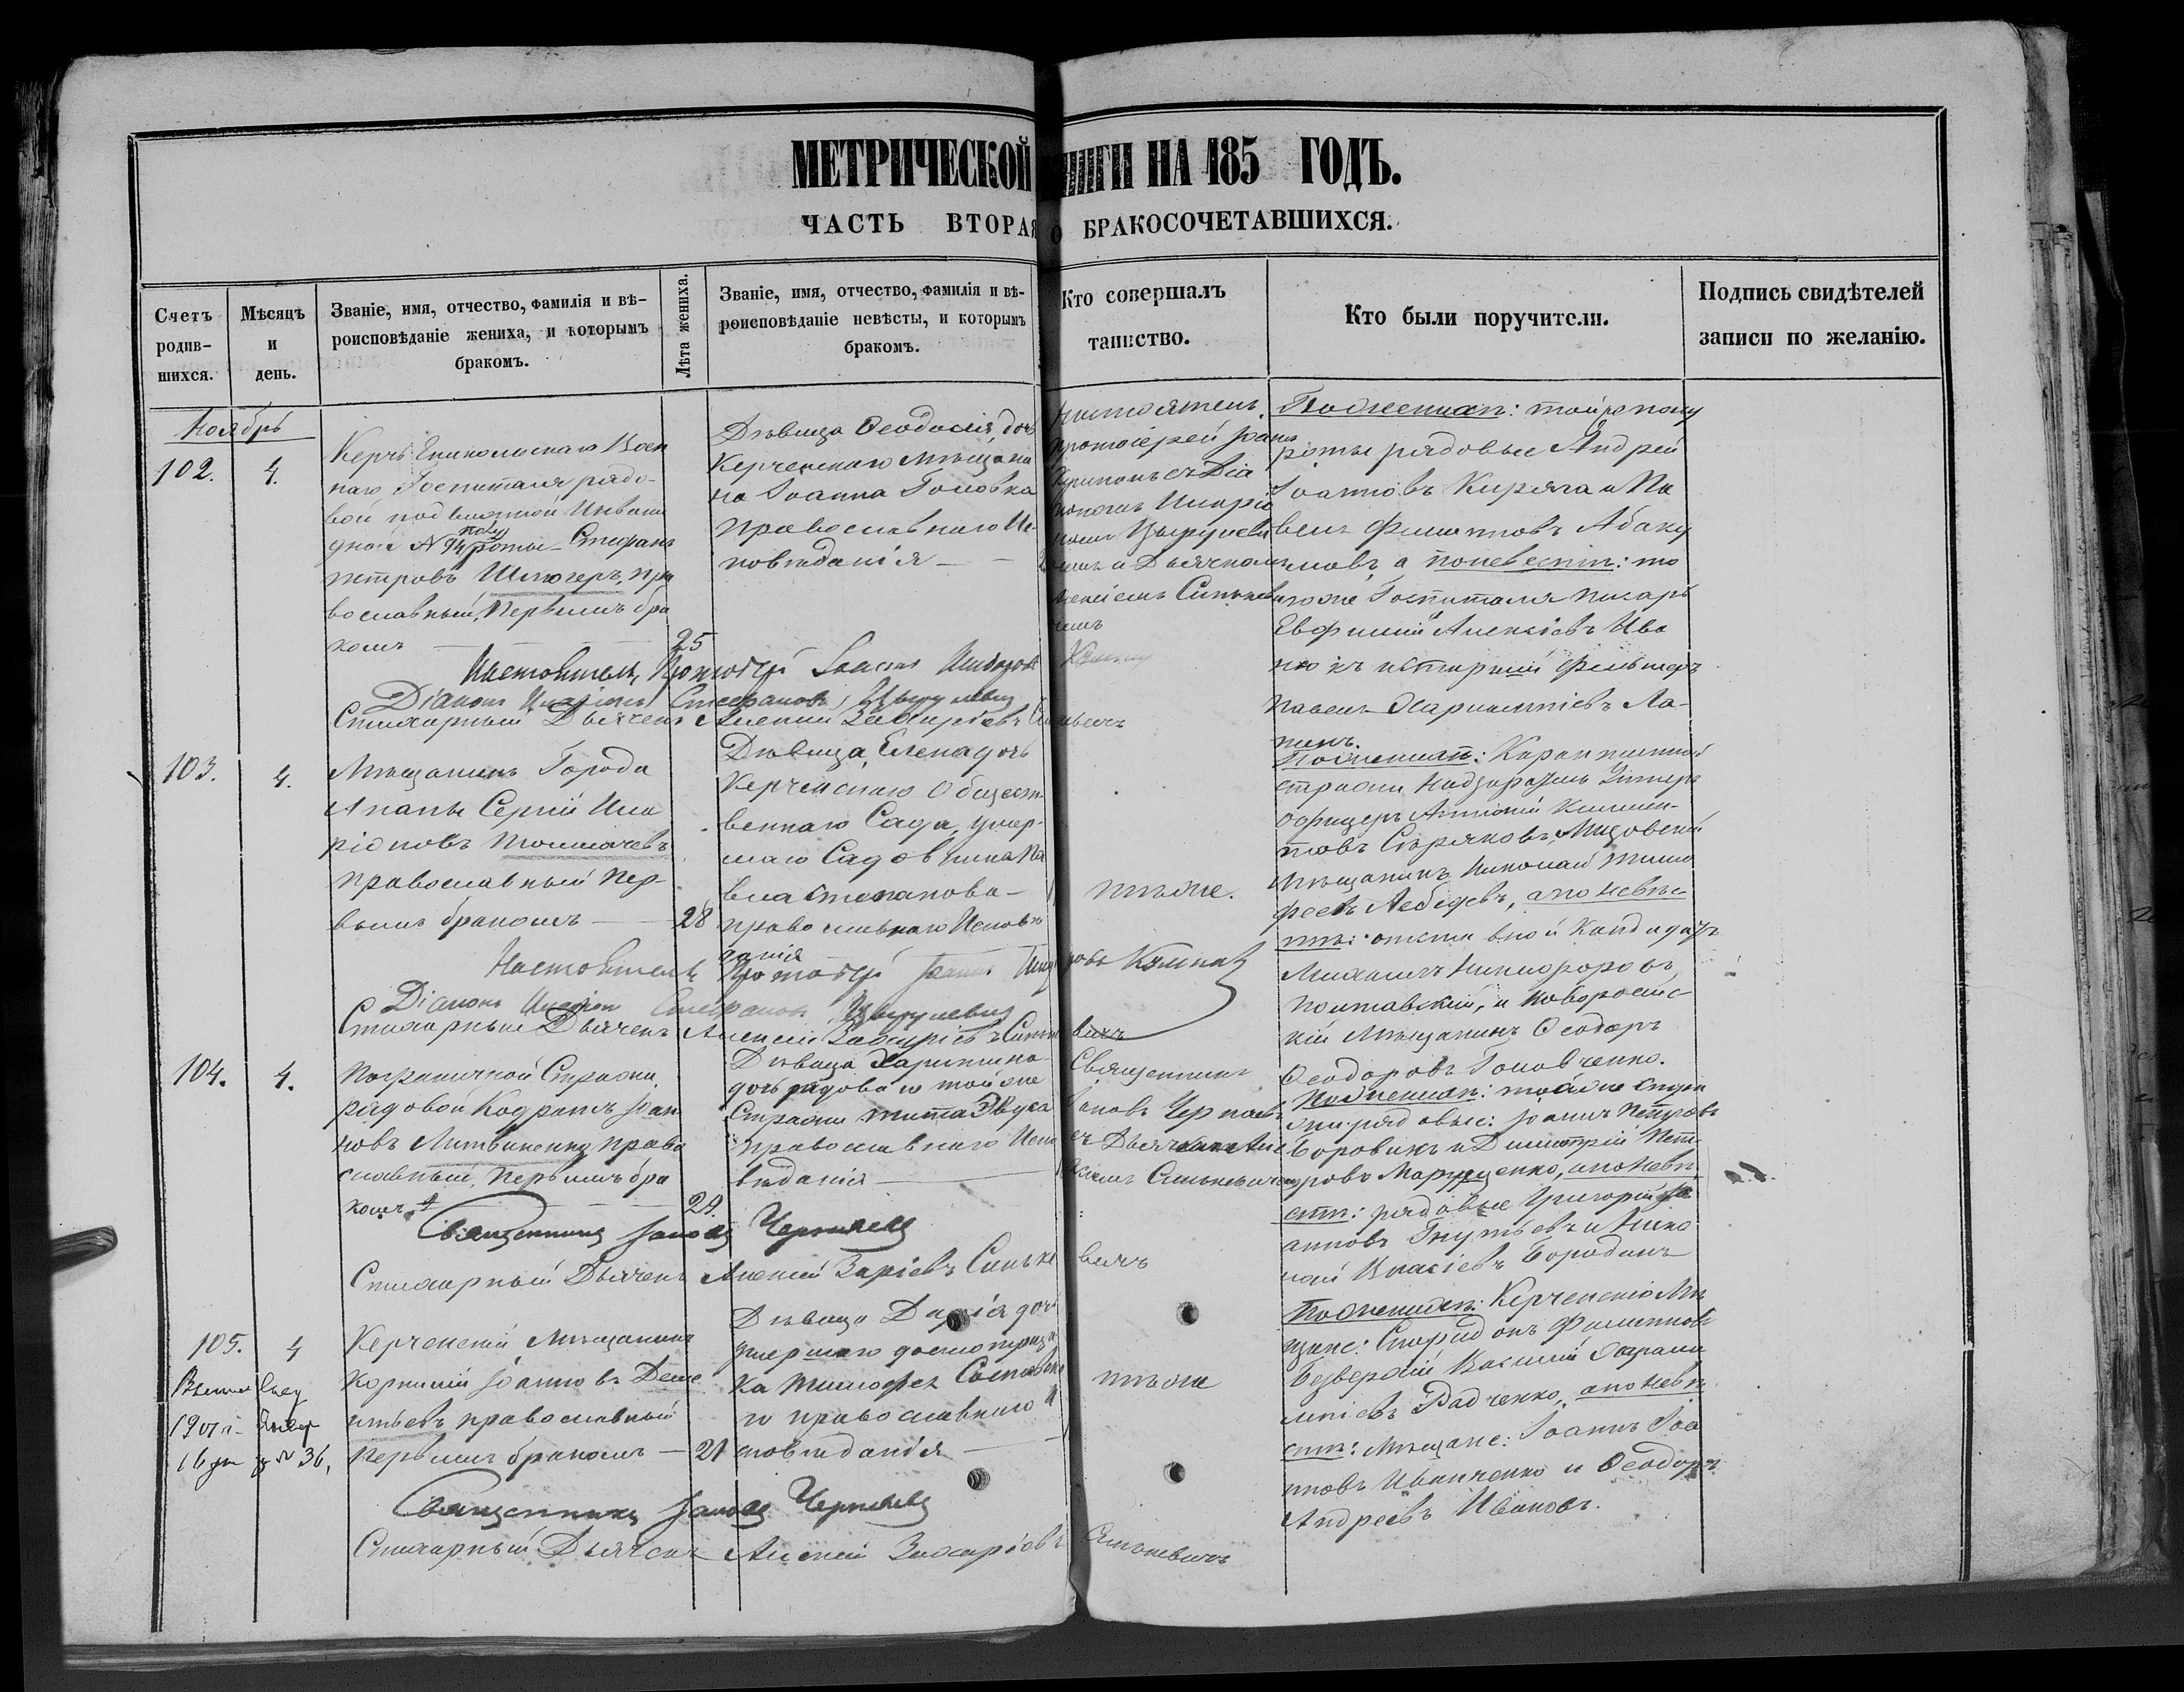 МЕТРИЧЕСКОЙ КНИГИ НА 185 ГОДЪ.
ЧАСТЬ ВТОРАЯ О БРАКОСОЧЕТАВШИХСЯ.
Счетъ родившихся.
Мѣсяцъ и день.
Званіе, имя, отчество, фамилія и вѣ-
роисповѣданіе жениха, и которымъ
бракомъ.
Лѣта жениха.
Званіе, имя, отчество, фамилія и вѣ-
роисповѣданіе невѣсты, и которымъ
бракомъ.
Кто совершалъ
таинство.
Кто были поручители.
Подпись свидѣтелей
записи по желанію.
Ноябрь
102. 4.
Керчь Еникольскаго Воен
наго Госпиталя рядо-
вой подвижной Инвали
дной № 94 полу роты Стефанъ
Петровъ Шлюгеръ, пра
вославный, первымъ бра
комъ 25
Дѣвица Ѳеодосія, дочь
Керченскаго мѣщани
на Іоанна Головка
православнаго Ис-
повѣданія
Настоятель,
протоіерей Іоаннъ
съ Діа
кономъ Иларіо
номъ Цырулеви
чемъ и Дьячкомъ
Алексіемъ Синькеви
чемъ
По женихѣ: той же полу
роты рядовые Андрей
Іоанновъ Киряча и Па
велъ Филипповъ Абаку
мовъ, а по невѣстѣ: то
го же Госпиталя писарь
Евфимій Алексіевъ Ива
нюкъ и старшій фельдшеръ
Павелъ Харлампіевъ Ла-
Настоятель, Протоіерей Іоаннъ
Діаконъ Иларіонъ Стефановъ Цырулевичъ
Стихарный Дьячекъ Алексій Захаріевъ Синькевичъ
103. 4.
Мѣщанинъ Города
Анапы Сергій Ила
ріоновъ Толмачевъ
православный пер-
вымъ бракомъ 28
Дѣвица Елена дочь
Керченскаго Общест-
веннаго Сада, умер-
шаго Садовника Па
вла Степанова
православнаго Исповѣ
данія
тѣже.
По женихѣ: Карантинной
стражи Надзиратель Унтеръ
офицеръ Антоній Климен-
товъ
мѣщанинъ Николай Тимо
феевъ Лебедевъ, а по невѣс-
тѣ: отставной Кандидатъ
Михаилъ Никифоровъ
Полтавскій, и Новороссійс-
кій мѣщанинъ Ѳеодоръ
Ѳеодоровъ Головченко.
Настоятель Протоіерей Іоаннъ
Діаконъ Иларіонъ Стефановъ Цырулевичъ
Стихарный Дьячекъ Алексій Захаріевъ Синькевичъ
104. 4.
Пограничной Стражи,
рядовой Кодратъ Іоан
новъ Литвиненко, право
славный, первымъ бра
комъ 29.
Дѣвица Харитина
дочь рядоваго той же
Стражи Тита
православнаго Испо
вѣданія
Священникъ
Іаковъ Чернявъ
съ Дьячкомъ Але
ксіемъ Синькевичемъ
По женихѣ: той же стра
жи рядовые: Іоаннъ Петровъ
Боровикъ и Димитрій Пет-
ровъ Марущенко, а по невѣ
стѣ: рядовые Григорій Іо
анновъ Гнутьевъ и Нико
лай Власіевъ Бородинъ
Священникъ Іаковъ Чернявъ
Стихарный Дьячекъ Алексій Захріевъ Синькевичъ
105. 4
Керченскій мѣщанинъ
Корнилій Іоанновъ Деме
нтьевъ православный
первымъ бракомъ 21
Дѣвица Дарія дочь
умершаго
ка Тимофея
го православнаго и
сповѣданія
тѣже
По женихѣ: Керченскіе мѣ
щане: Спиридонъ Филипповъ
Безверхій Василій Харлам
піевъ Радченко, а по невѣ
стѣ: мѣщане: Іоаннъ Іоа
нновъ Иванченко и Ѳеодоръ
Андреевъ Ивановъ.
№ 36,
Священникъ Іаковъ Чернявъ
Стихарный Дьячекъ Алексій Захаріевъ Синькевичъ